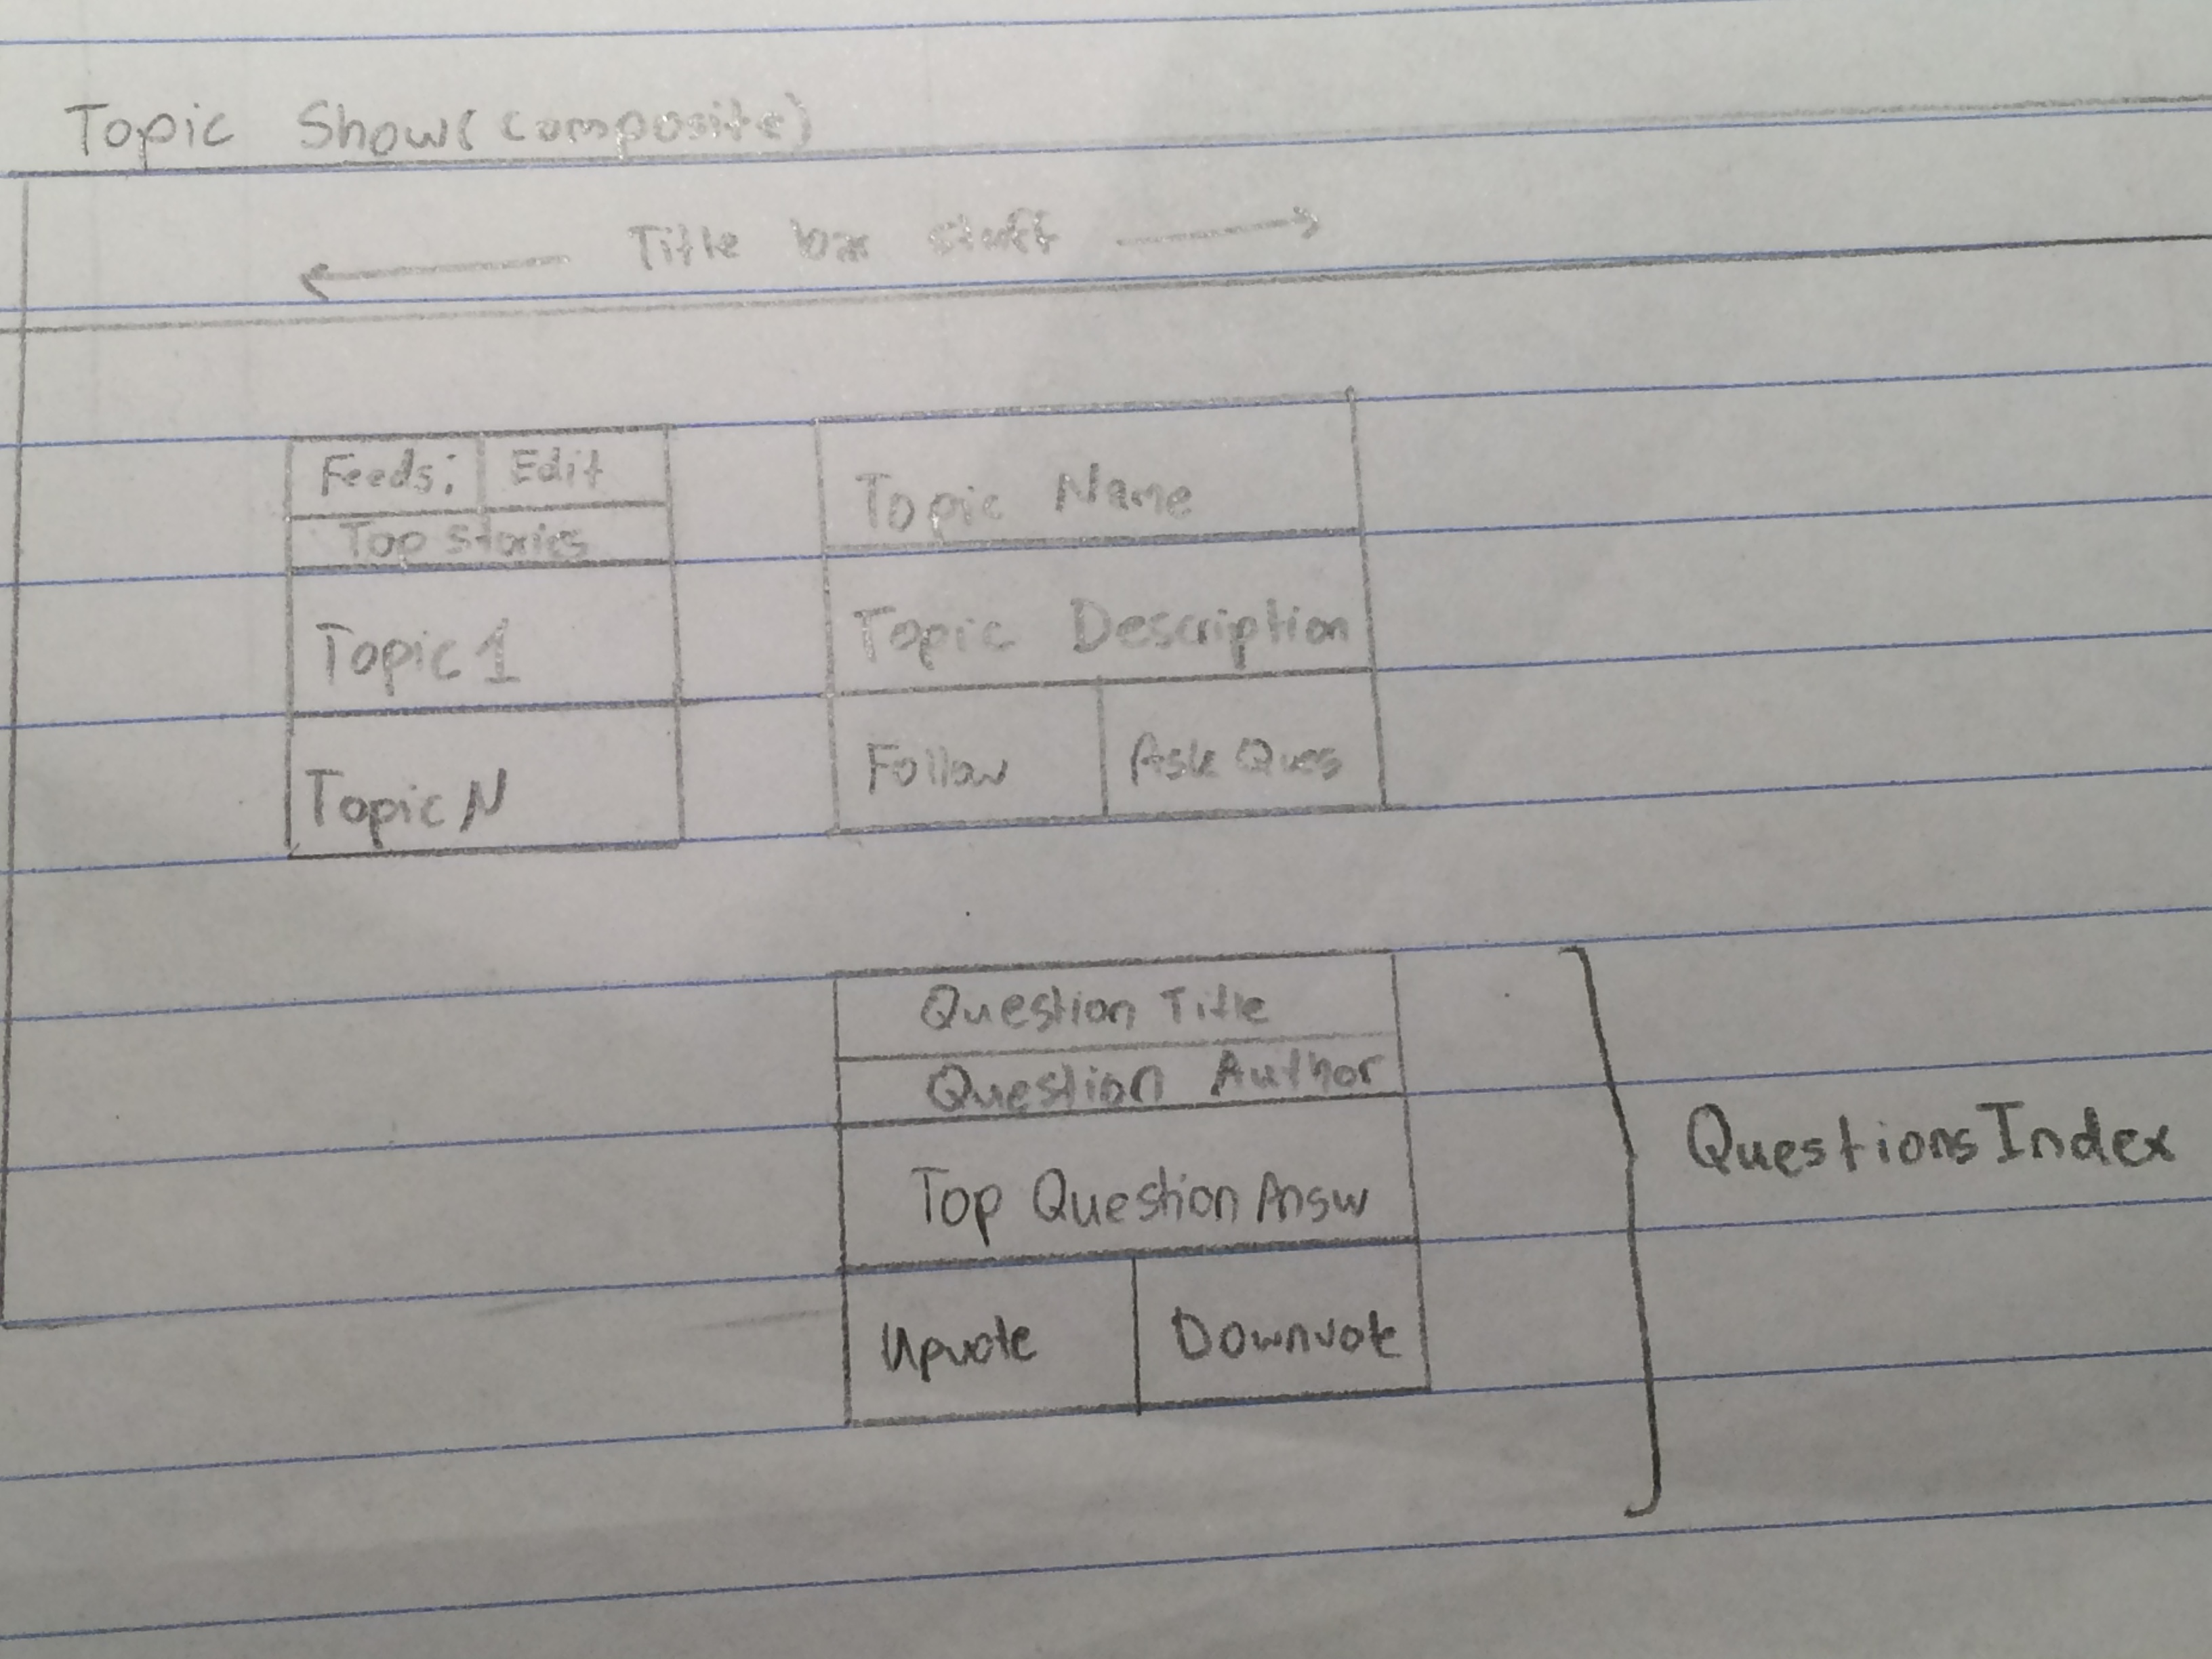 Topic Show(composite)
← Title bar stuff →
Feeds: Edit
Top Stories
Topic 1
Topic N
Topic Name
Topic Description
Follow Ask Ques
Question Title
Question Author
Top Question Answ
Upvote Downvote
QuestionsIndex